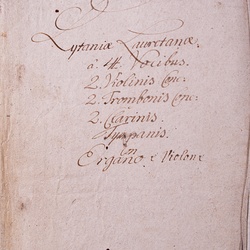 Lytaniæ Lauretanæ.
à 4. Vocibus.
2. Violinis Conc:
2. Trombonis Conc:
2. Clarinis.
Tympanis.
Con
Organo e Violone